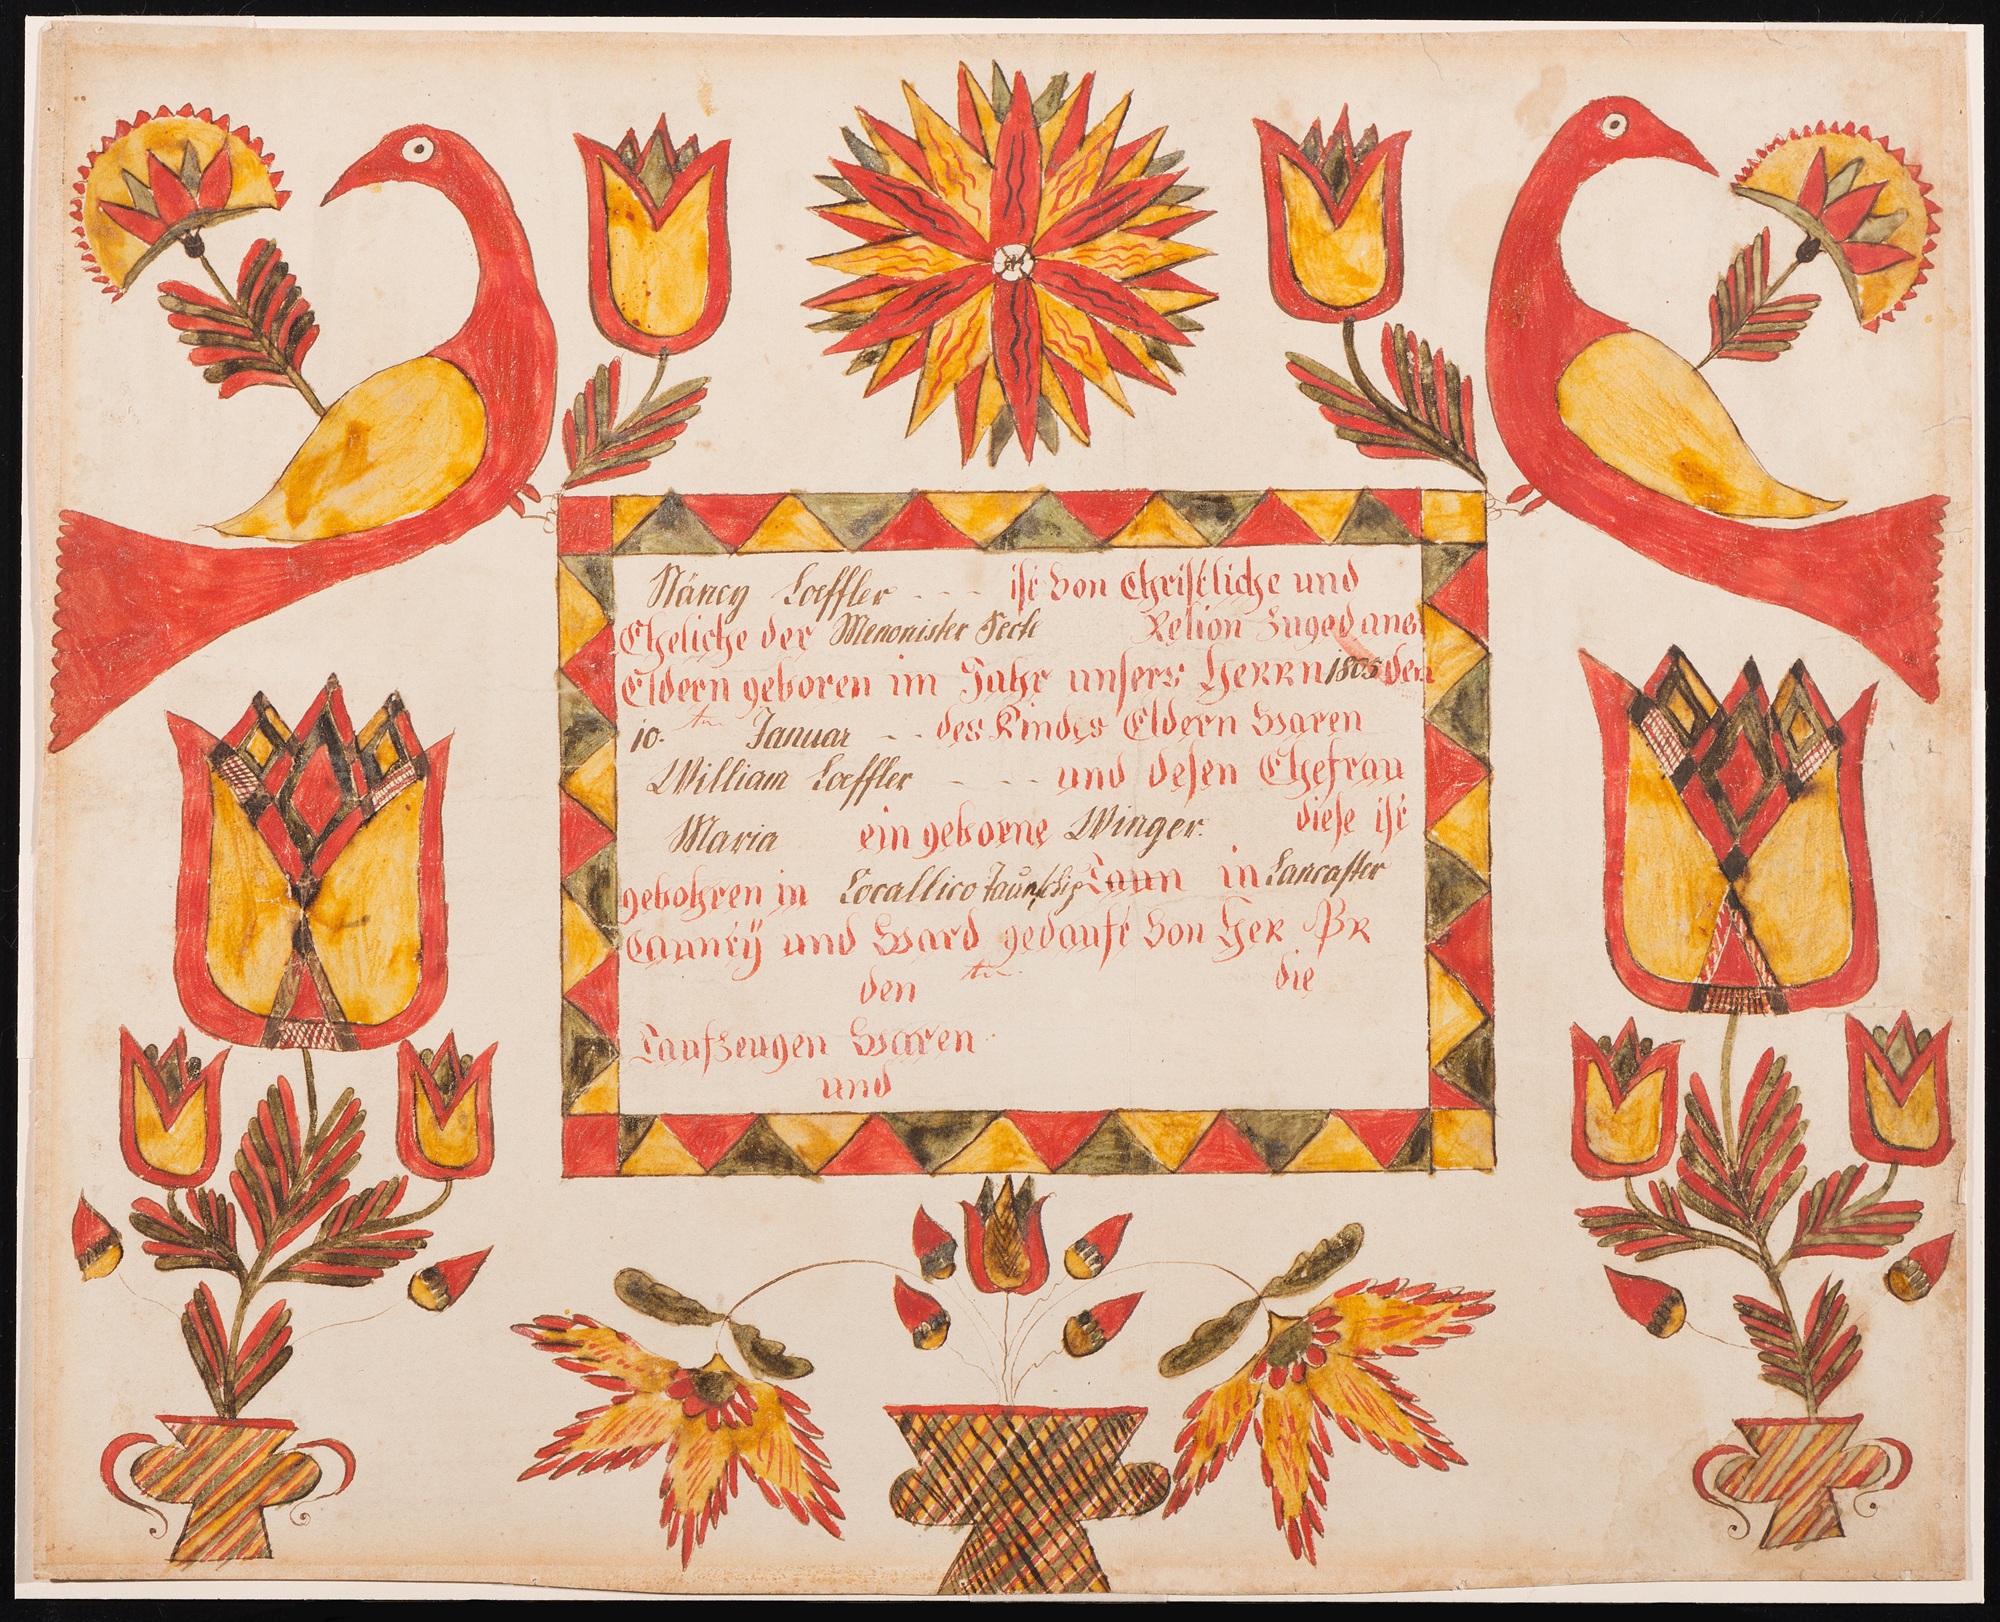 Näncy Loeffler - - - ist von Christliche und
Eheliche der Menonister Secte Relion zugedanei
Eldern geboren im Jahr unsers HERRN 1805 den
10. ten Januar - - des Kindes Eldern waren
William Loeffler - - - und desen Ehefrau
Maria ein geborne Winger. diese ist
gebohren in Cocallico Taunschip Taun in Lancaster
Caunty und ward gedauft von HER PR
den ten die
Taufzeugen waren
und